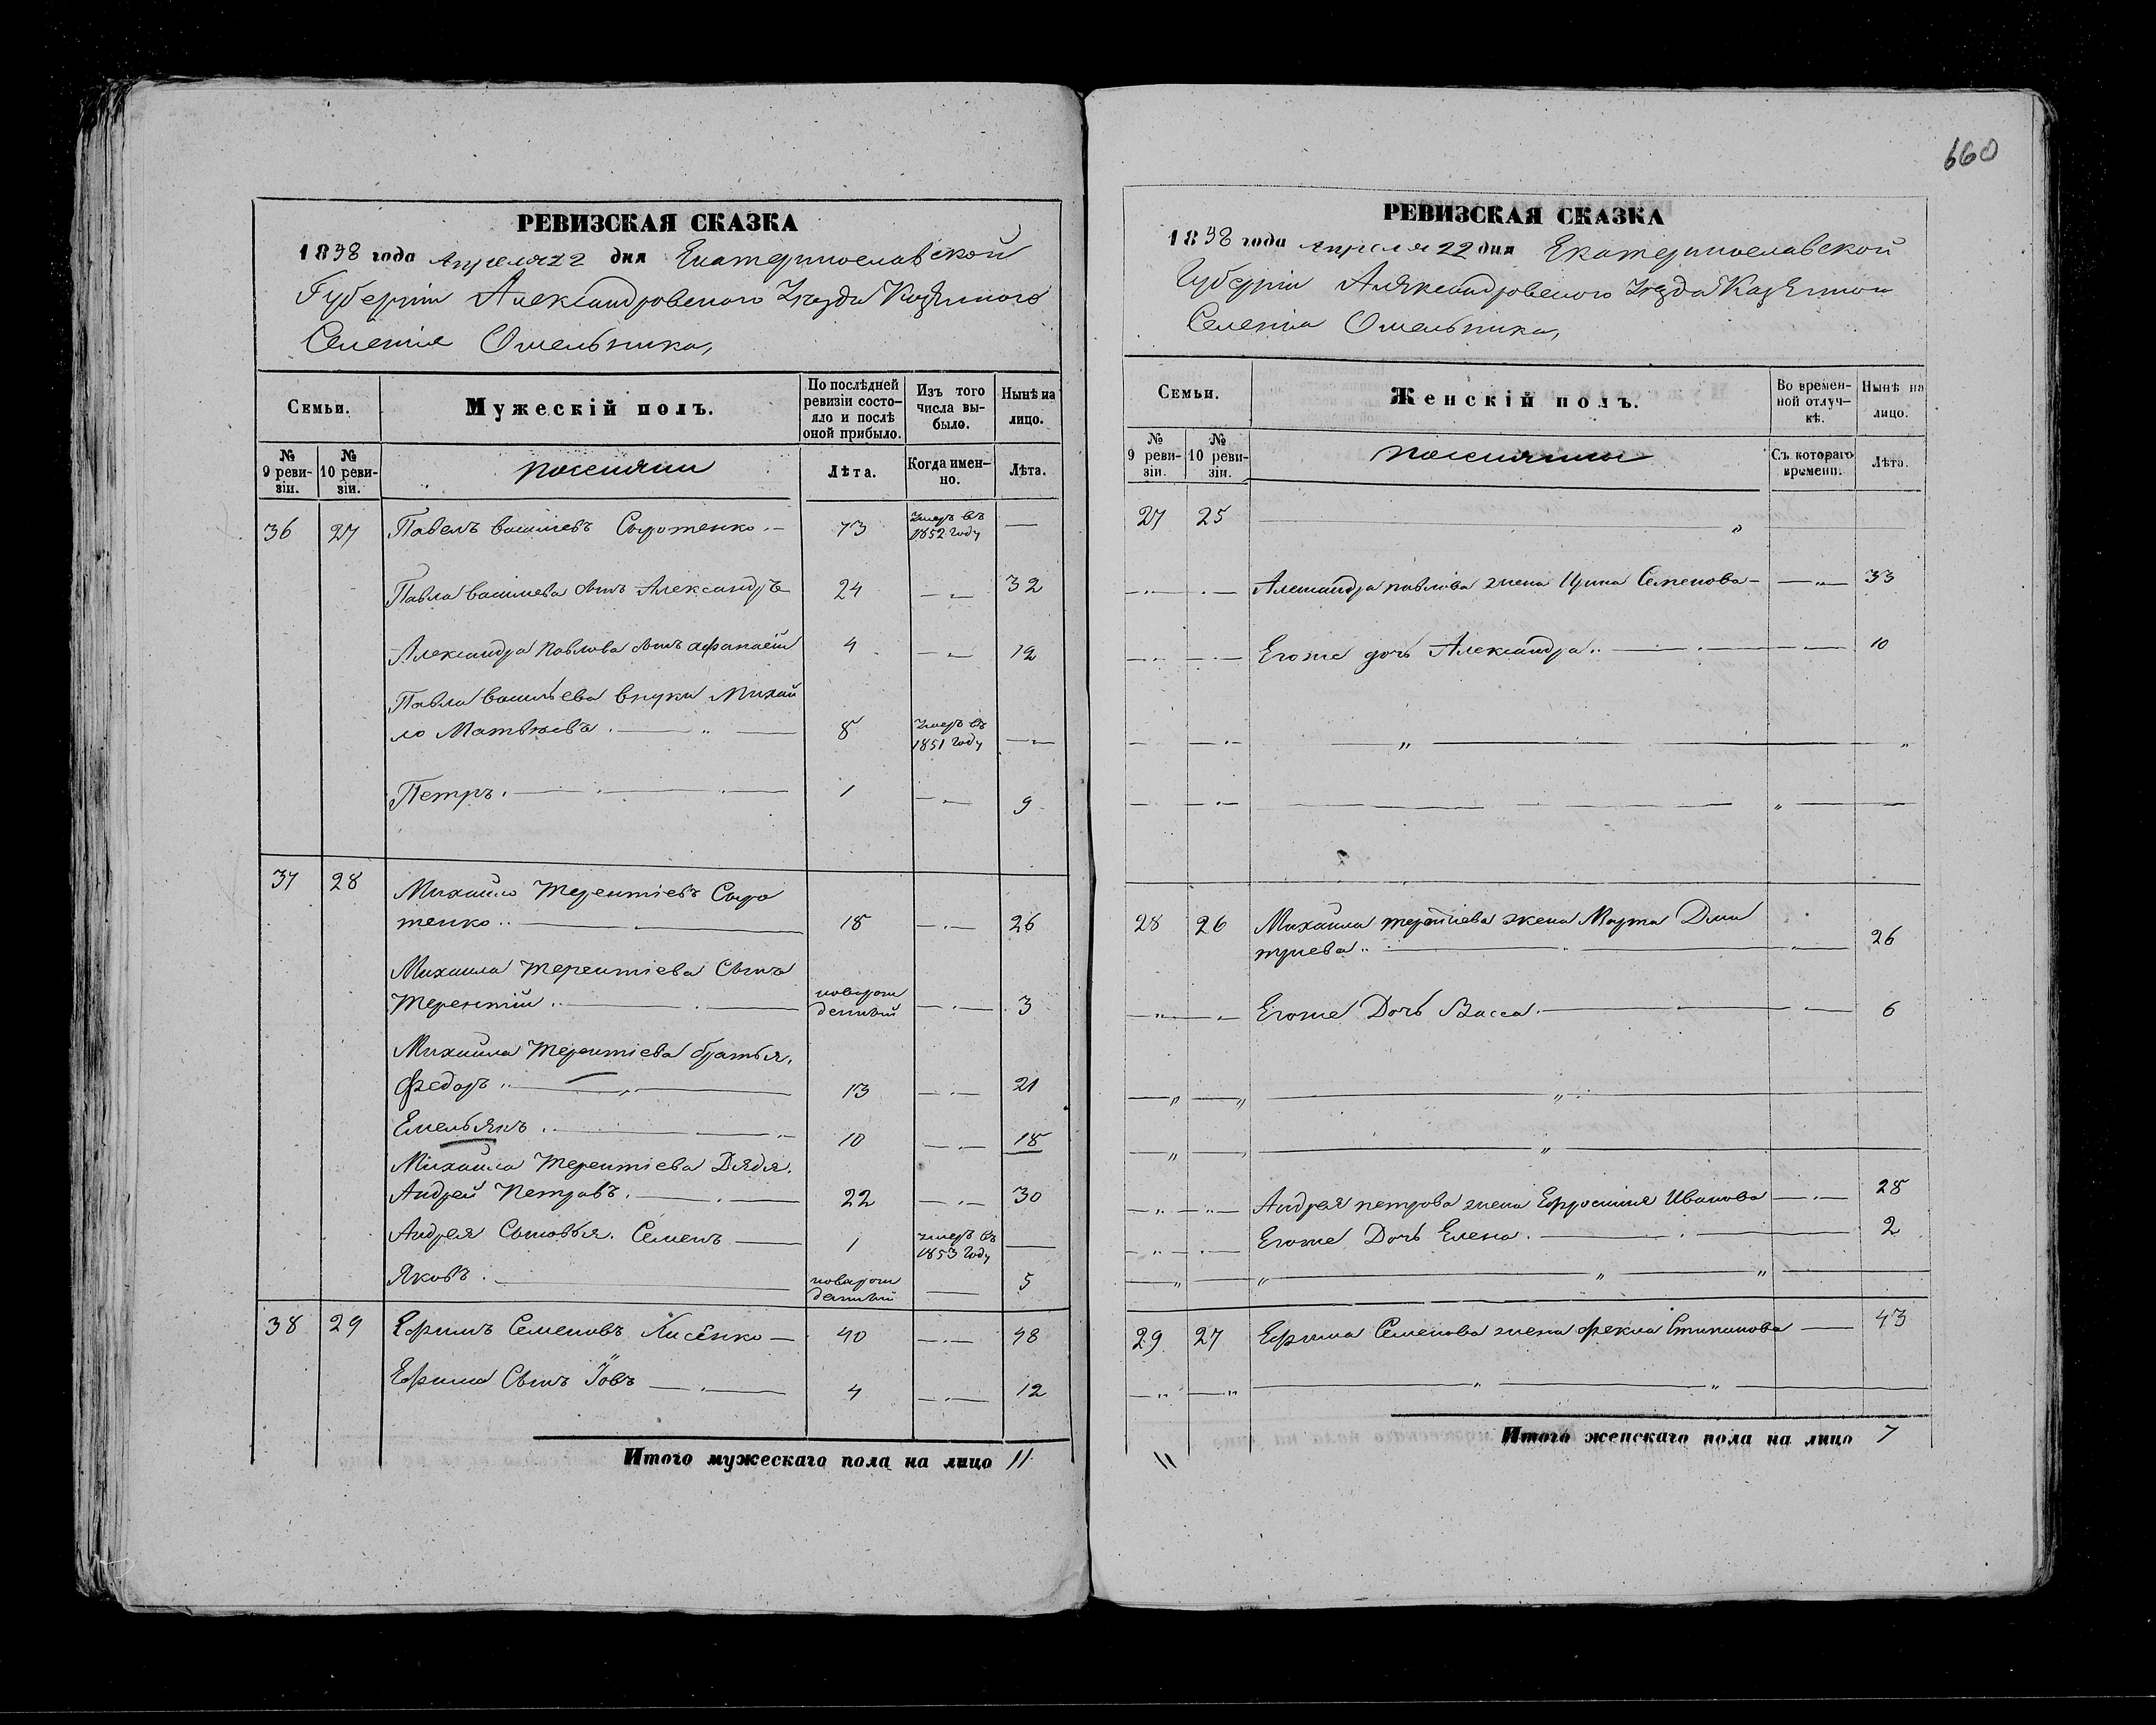 660
РЕВИЗСКАЯ СКАЗКА
1858 года Апреля 22 дня Екатеринославской
Губерніи Александровского Уезда Казенного
Селенія Омельника,
Семьи.
Мужескій полъ.
По послѣдней ревизіи состояло и послѣ оной прибыло.
Изъ того числа выбыло.
Нынѣ на лицо.
№ 9 ревизіи.
№ 10 ревизіи.
поселяни
Лѣта.
Когда именно.
Лѣта.
36 27 Павелъ васильевъ Сыротенко. 73 Умеръ въ 1852 году —
Павла васильева сынъ Александръ 24 — 32
Александра Павлова сынъ афанасій 4 — 12
Павла васильева внуки Михай
ло Матвѣевъ. 8 Умеръ въ 1851 году —
Петръ. 1 — 9
37 28 Михайло Терентіевъ Сыро
тенко.. 18 — 26
Михаила Терентіева Сынъ
Терентій.. новорожденный — 3
Михаила Терентіева братья.
Федоръ.. 13 — 21
Емельянъ. 10 — 18
Михаила Терентіева Дядя.
Андрей Петровъ. 22 — 30
Андрея Сыновья. Семенъ 1 умеръ въ 1853 году —
Яковъ. новорожденный — 5
38 29 Ефимъ Семеновъ Лисенко 40 — 48
Ефима Сынъ Іовъ 4 — 12
Итого мужескаго пола на лицо 11
РЕВИЗСКАЯ СКАЗКА
1858 года апреля 22 дня Екатеринославской
Губерніи Александровского Уезда Казенного
Селенія Омельника,
Семьи.
Женскій полъ.
Во временной отлучкѣ.
Нынѣ на лицо.
№ 9 ревизіи.
№ 10 ревизіи.
поселянки
Съ котораго времени.
Лѣта.
27 25 —
Александра павлова жена Ирина Семенова — 33
Егоже дочь Александра.. — 10
28 26 Михаила терентіева жена Марта Дми
тріева.. — 26
Егоже Дочь Васса. — 6
Андрея петрова жена Ефросинія Иванова — 28
Егоже Дочь Елена. — 2
29 27 Ефима Семенова жена Фекла Степанова — 43
Итого женскаго пола на лицо 7